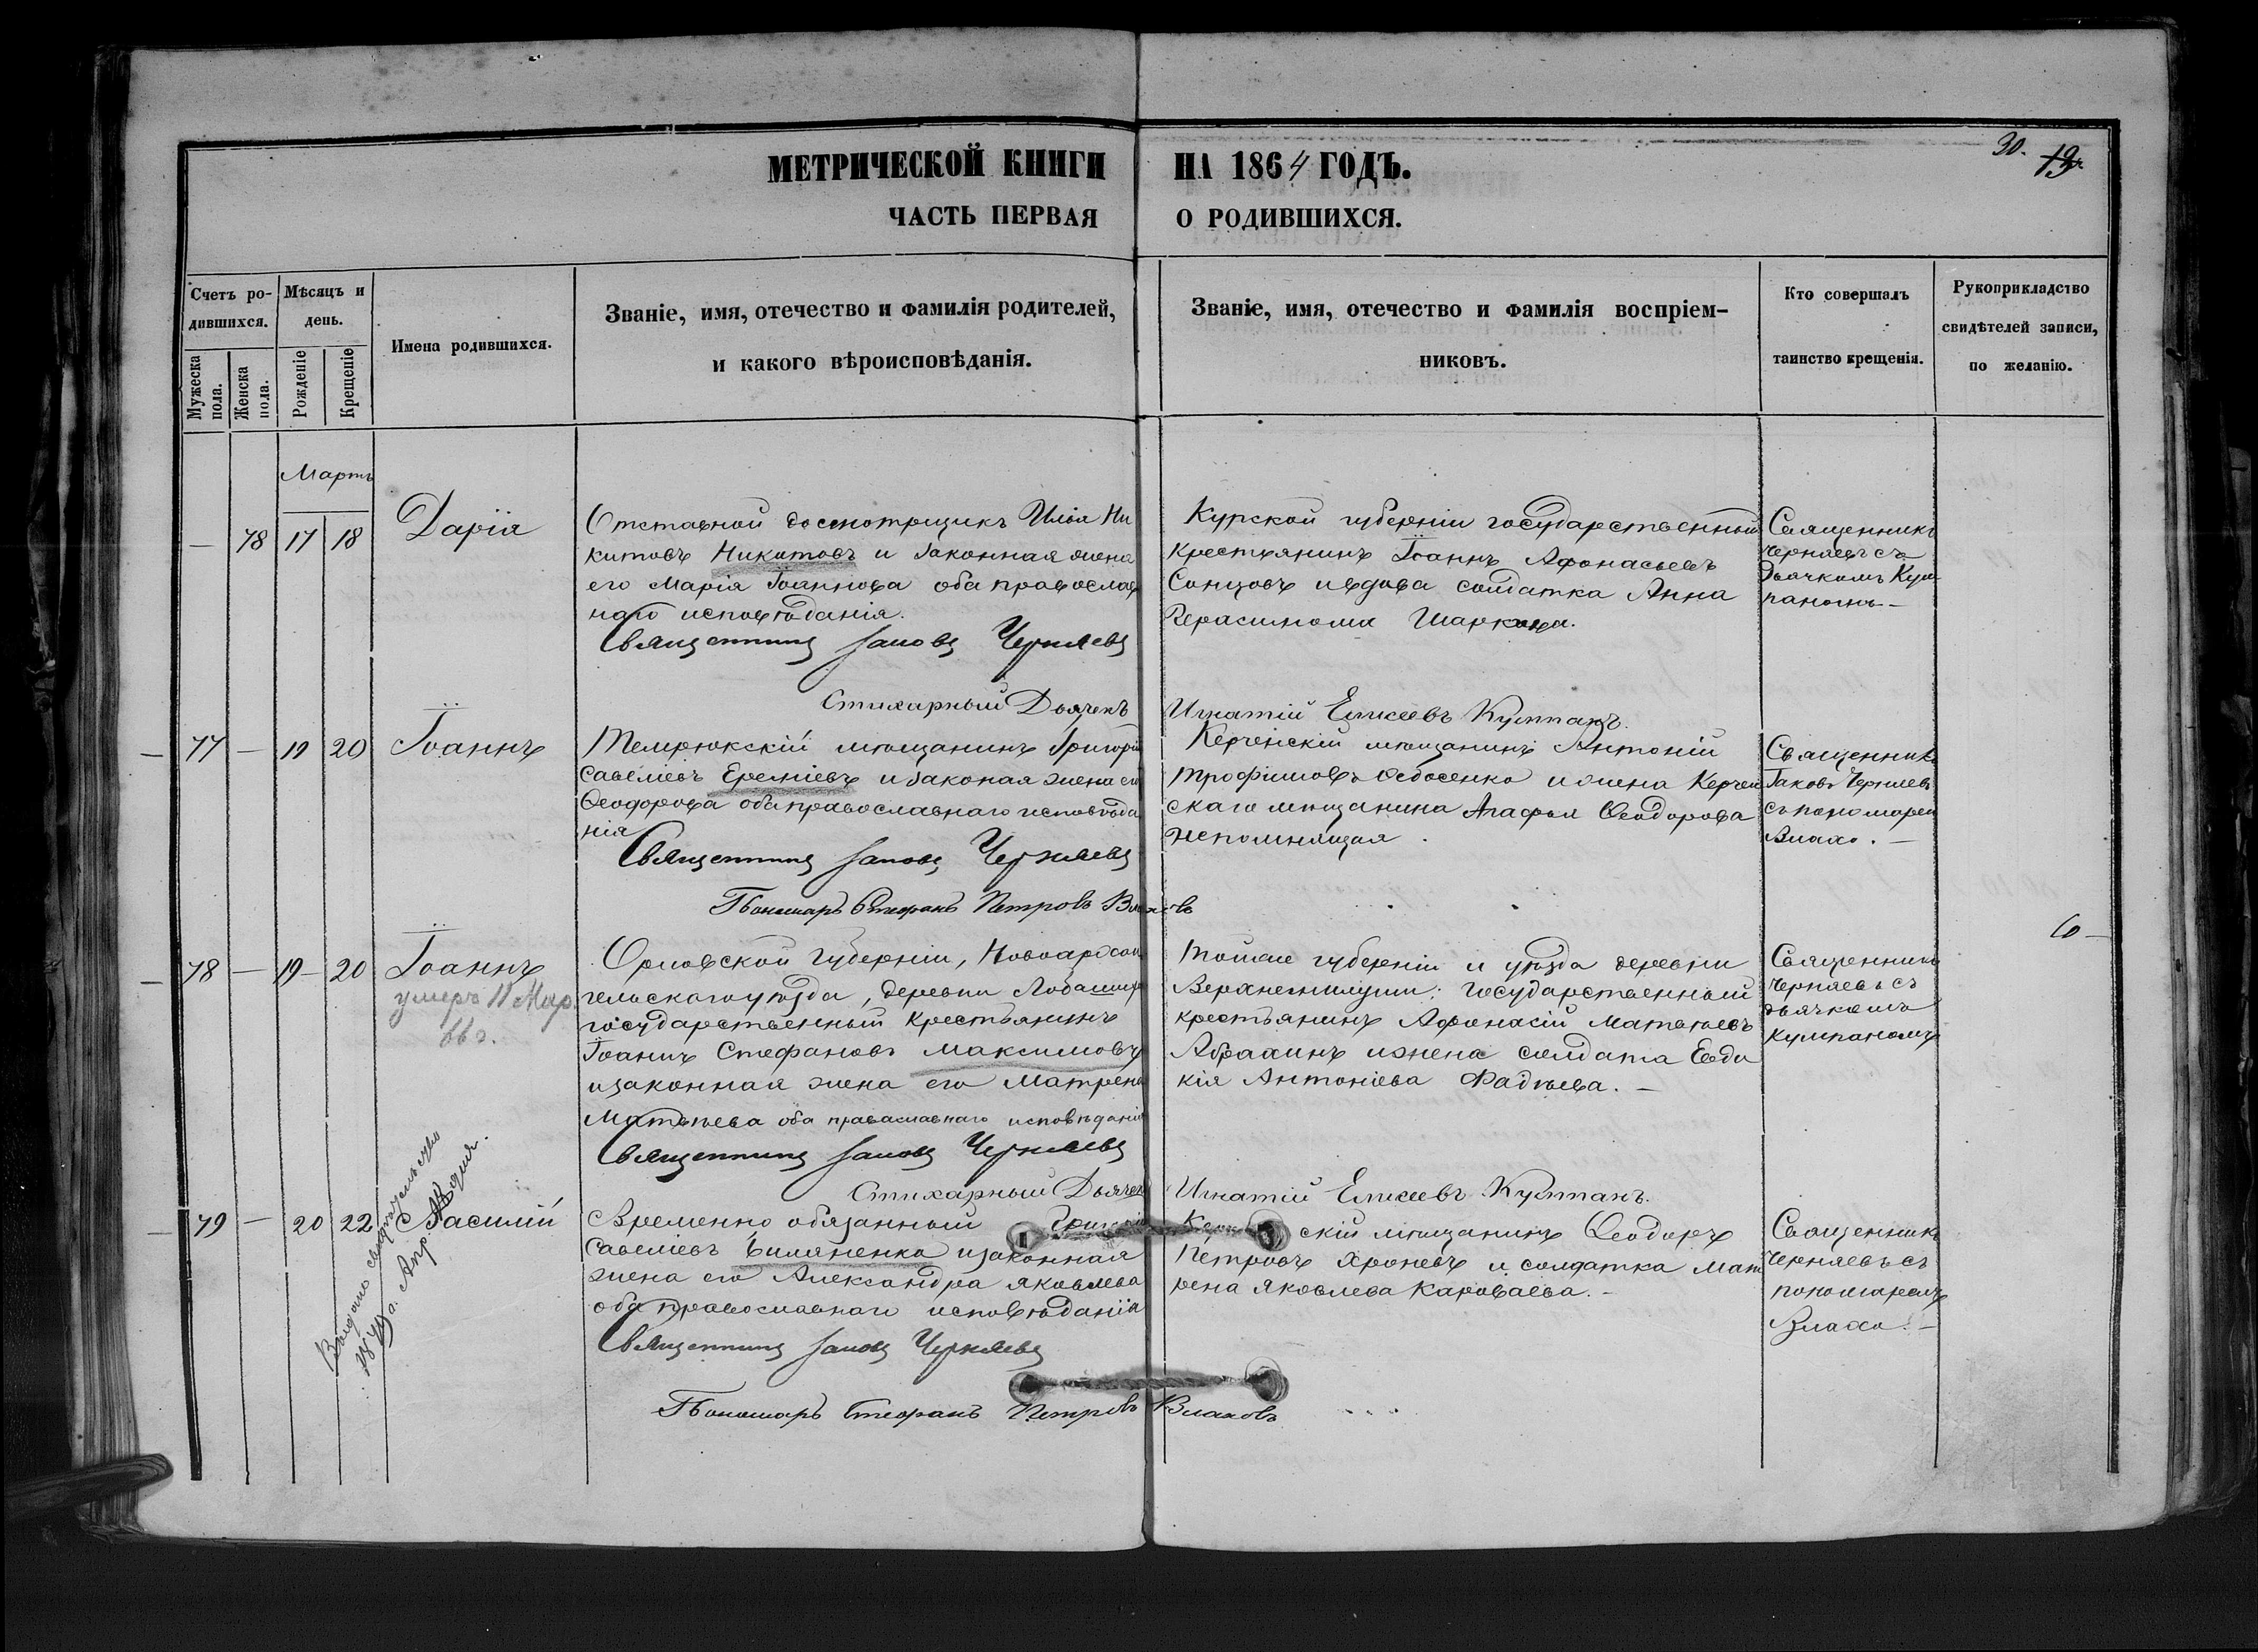 МЕТРИЧЕСКОЙ КНИГИ НА 1864 ГОДЪ.
30. 19
ЧАСТЬ ПЕРВАЯ О РОДИВШИХСЯ.
Счетъ ро-
дившихся.
Мужеска пола.
Женска пола.
Мѣсяцъ и
день.
Рожденіе
Крещеніе
Имена родившихся.
Званіе, имя, отечество и фамилія родителей,
и какого вѣроисповѣданія.
Званіе, имя, отечество и фамилія воспріем-
никовъ.
Кто совершалъ
таинство крещенія.
Рукоприкладство
свидѣтелей записи,
по желанію.
Мартъ
— 78 17 18
Дарія
Отставной досмотрщикъ Илья Ни
китовъ Никитовъ и законная жена
его Марія Іоаннова оба православ
наго исповѣданія.
Священникъ Іаковъ Черняевъ
Курской губерніи государственный
крестьянинъ Іоаннъ Афонасьевъ
Сонцовъ и вдова солдатка Анна
Герасимова
Священникъ
Черняевъ съ
Дьячкомъ Кум
паномъ —
Стихарный Дьячекъ Игнатій Елисеевъ Кумпанъ.
77 — 19 20
Іоаннъ
Темрюкскій мѣщанинъ Григорій
Савеліевъ Ереміевъ и законая жена его
Ѳеодорова оба православнаго исповѣда
нія
Священникъ Іаковъ Черняевъ
Керченскій мѣщанинъ Антоній
Трофимовъ Ѳедосенко и жена Керчен
скаго мѣщанина Агафья Ѳеодорова
Непомнящая.
Священникъ
Іаковъ Черняевъ
съ пономарем
Влахо. —
Пономарь Стефанъ Петровъ Влаховъ
78 — 19 — 20
Іоаннъ
умеръ 11 Мар
66 г.
Орловской Губерніи,
гельскаго уѣзда, деревни
государственный крестьянинъ
Іоаннъ Стефановъ Максимовъ
и законная жена его Матрена
Матвѣева оба православнаго исповѣданія
Священникъ Іаковъ Черняевъ
Тойже губерніи и уѣзда деревни
государственный
крестьянинъ Афонасій Матвѣевъ
Абрахинъ и жена солдата Евдо
кія Антоніева Фадѣева. —
Священникъ
Черняевъ съ
дьячкомъ
Кумпаномъ
6 —
Стихарный Дьячекъ Игнатій Елисеевъ Кумпанъ.
79 — 20 22
Василій
Выдано свидѣтельство
Апр. дня.
Временно обязанный
Савеліевъ Биляненка и законная
жена его Александра Яковлева
оба православнаго исповѣданія
Священникъ Іаковъ Черняевъ
скій мѣщанинъ Ѳеодоръ
Петровъ Хроневъ и солдатка Мат
рена Яковлева Короваева. —
Священникъ
Черняевъ съ
пономаремъ
Влахо. —
Пономарь Стефанъ Петровъ Влаховъ